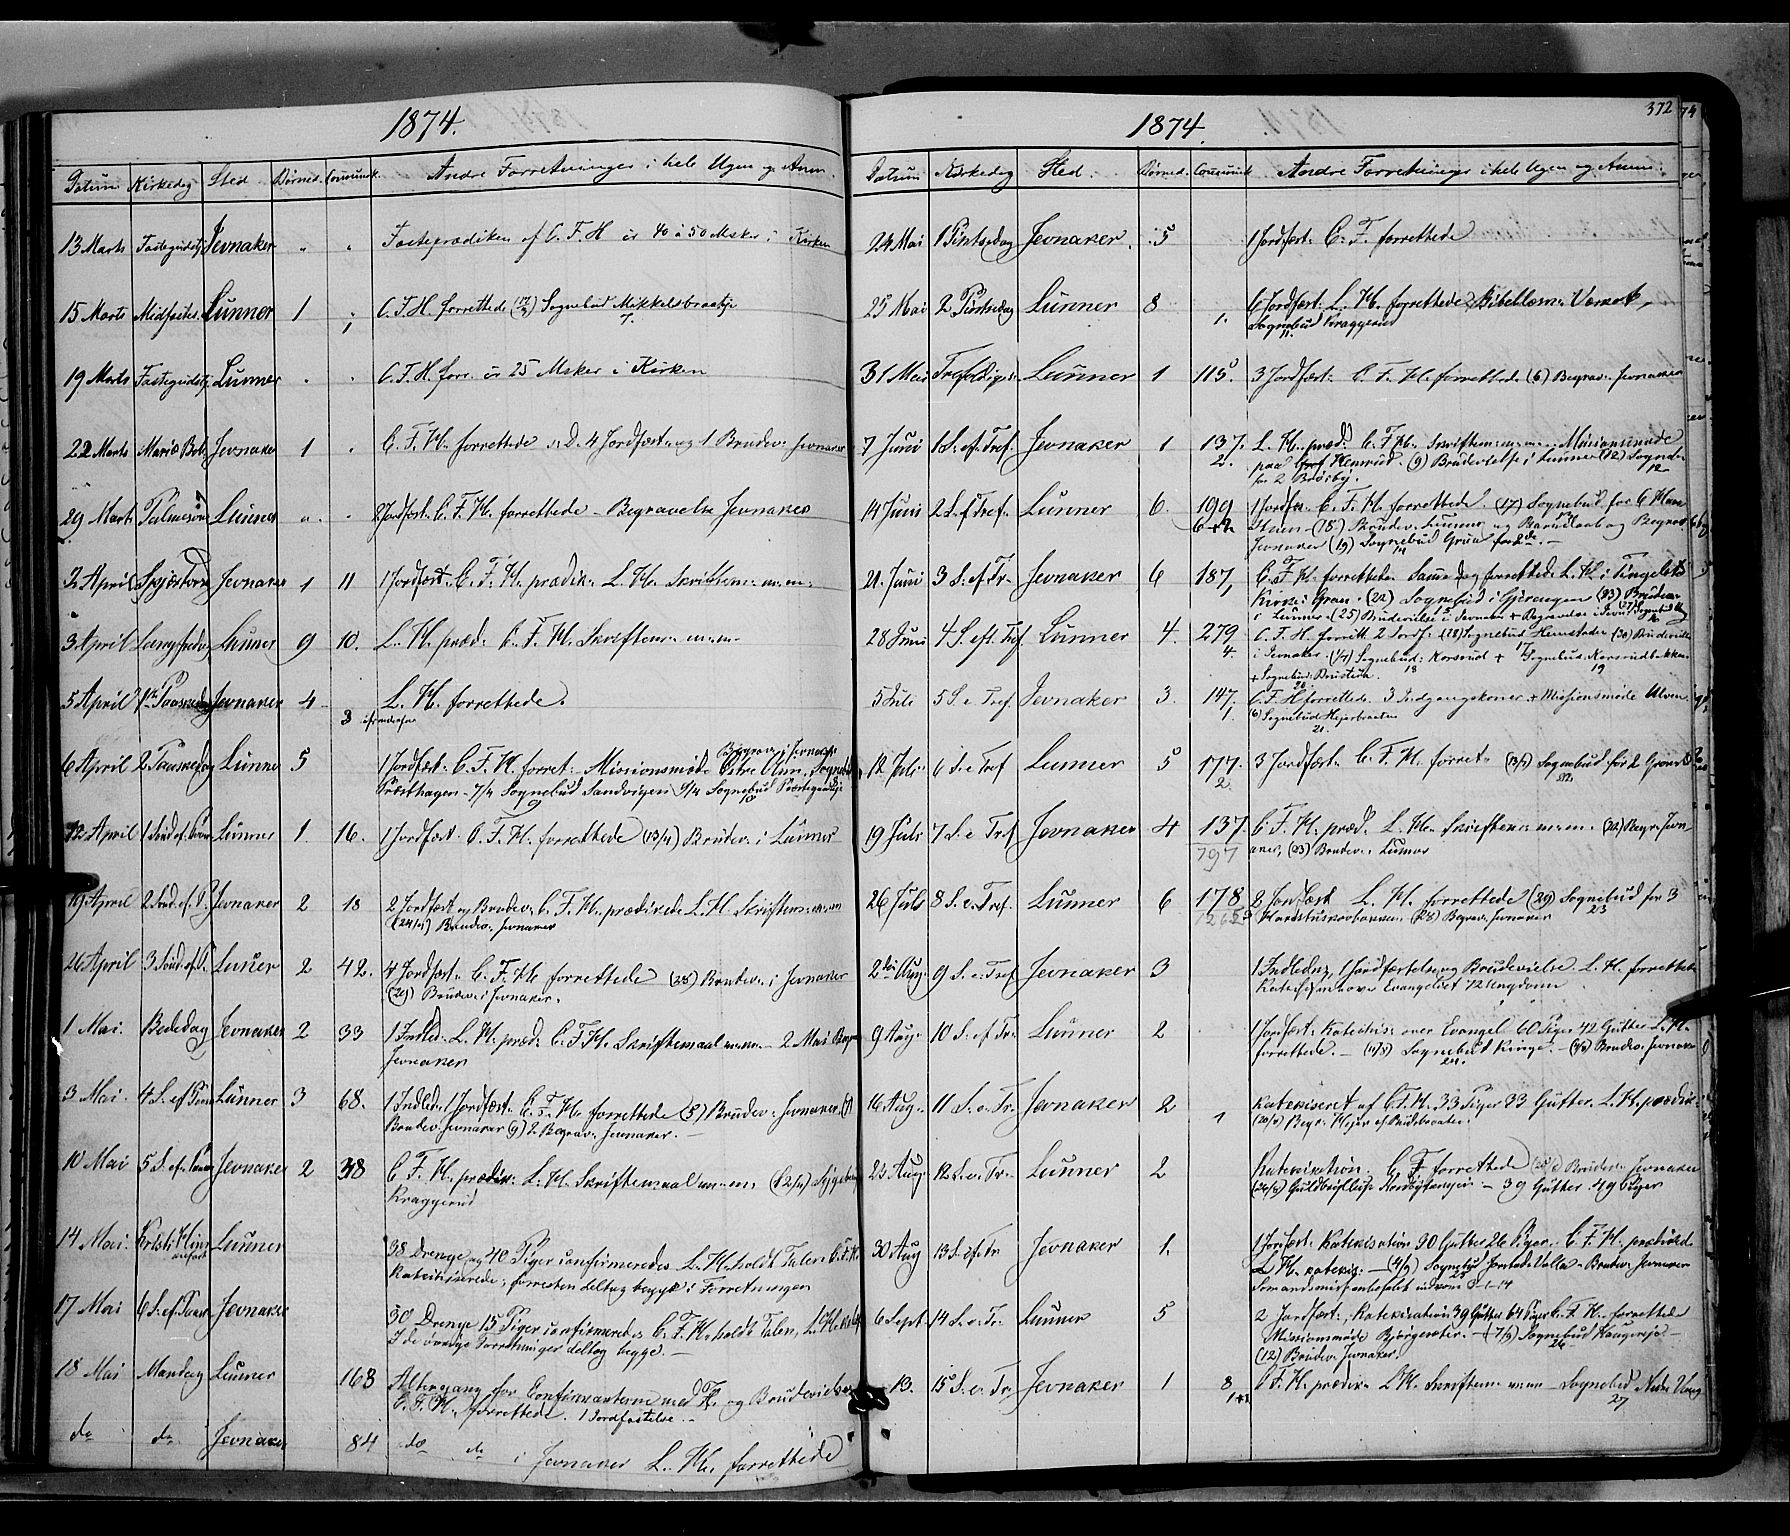 1874.
Datum Kirkedag Sted Børned. Communik. Andre Forretninger i hele Ugen og Anm.
13 Marts Fastegudstj Jevnaker " " Fasteprædiken af C. F. H ca 40 à 50 Msker i Kirken
15 Marts Midfaste. Lunner 1 C. F. H. forrettede Sognebud Mikkelsbraatje
1 7.
19 Marts Fastegudstj Lunner " " C. F. H. forr. ca 25 Msker i Kirken
22 Marts Mariæ Beb. Jevnaker 1 " C. F. H. forrettede 4 Jordfæst. og 1 Brudev. Jevnaker
29 Marts Palmesøn Lunner " " 2 Jordfæst. C. F. H. forrettede - Begravelse Jevnaker
2 April Skjærtorsd Jevnaker 1 11 1 Jordfæst. C. F. H. prædik. L. H. Skriftem. m. m.
3 April Langfredag Lunner 9 10. L. H. præd. C. F. H. Skriftem. m. m.
5 April 1ste Paaskedag Jevnaker 4 L. H. forrettede.
3
6 April 2 Paaskedag Lunner 5 1 Jordfæst. C. F. H. forret. Missionsmøde Østre
Begrav. i Jevnaker
Præsthagen - 7/4 Sognebud Sandvigen 9/4 Sognebud
9 10
12 April 1 Sønd. ef. Paaske Lunner 1. 16. 1 Jordfæst. C. F. H. forrettede (13/4) Brudev. i Lunner
19 April 2 Sønd. ef. P. Jevnaker 2 18 2 Jordfæst og Brudev. C. F. H. prædikede L. H. Skriftem. m. m
(24/4) Brudev. Jevnaker
26 April 3 Sønd. ef. P. Lunner 2 42. 4 Jordfæst. C. F. H. forrettede (28) Brudev. i Jevnaker
(29) Brudev. i Jevnaker.
1 Mai. Bededag Jevnaker 2 33 1 Indled. L. H. præd. C. F. H. Skriftemaal m. m. - 2 Mai Begr.
Jevnaker
3 Mai. 4 S. ef Paaske Lunner 3 68. 1 Indled. 1 Jordfæst. C. F. H. forrettede (5) Brudev. Jevnaker
Brudev. Jevnaker (9) 2 Begrav. Jevnaker. -
10 Mai 5 S. ef. Paaske Jevnaker 2 38 C. F. H. prædik. L. H. Skriftemaal m. m.
Kraggerud
14 Mai. Kristi Him Lunner
melfart 38 Drenge og 40 Piger confirmeredes L. H. holdt Talen C. F. H.
Katekiserede, forresten deltog begge i Forretningen
17 Mai 6 S. ef. Paaske Jevnaker 30 Drenge 15 Piger confirmeredes C. F. H. holdt Talen, L. H.
I de øvrige Forretninger deltog begge. -
18 Mai Mandag Lunner 163 Altergang for Confirmanterne med og Brudevielse
C. F. H. forrettede. 1 Jordfæstelse.
do do Jevnaker 84 do do i Jevnaker L. H. forrettede
372
1874
Datum Kirkedag Sted. Børned. Communik Andre Forretninger i hele Ugen og Anm.
24 Mai 1 Pintsedag Jevnaker. 5 1 Jordfæst. C. F. forrettede
25 Mai 2 Pintsedag Lunner 8 6 Jordfæst. L. H. forrettede Bibellæsn. Vamark,
1. Sognebud Kraggerud
11.
31 Mai Trefoldigh. Lunner 1 115. 3 Jordfæst. C. F. H. forrettede (6) Begrav. Jevnaker
7 Juni 1 S. ef. Tref. Jevnaker 1 137. L. H. præd. C. F. H. Skriftem. m. m. Missionsmøde
2. paa Henrud. (9) Brudevielse i Lunner (12) Sogne-
for 2 Brørby. 12
14 Juni 2 S. ef Tref. Lunner 6. 199 1 Jordfæ. C. F. H. forrettede. (17) Sognebud for
(18) Brudev. Lunner og og Begrav
Jevnaker (19) Sognebud Grua -
14
21. Juni 3 S. ef. Tr. Jevnaker 6 187, C. F. H. forrettede. Samme Dag forrettede L. H. i Tingelstad
Kirke i Gran. (22) Sognebud i Gjerengen (23) Brudev.
i Lunner (25) Brudevielse i Jevnaker + Begravelse i
28 Juni 4 S. eft. Tref Lunner 4. 279 C. F. H. forrett. 2 Jordf. (28) Sognebud (30) Brudeviels
4. i Jevnaker. (1/7) Sognebud. Korsrud + Sognebud. Korsrudbakken
18 19
+ Sognebud.
5 Juli 5 S. e Tref Jevnaker 3. 147. C. F. H. forrettede. 3 Indgangskoner + Missionsmøde Ulven
1. (6) Sognebud
21.
12 Juli. 6 S. e Tref Lunner 5 177. 3 Jordfæst. C. F. H. forret. Sognebud for 2
2. 22
19 Juli 7 S. e Tref Jevnaker 4 137. C. F. H. præd. L. H. Skriftem. m. m. (22) Begr. Jevn-
797 aker, (23) Brudev. Lunner
26 Juli 8 S. e. Tref. Lunner 6 178 2 Jordfæst L. H. forrettede (29) Sognebud for 3
(28) Begrav. Jevnaker 23
2den Aug. 9 S. e. Tref Jevnaker 3 1 Indledn, 1 Jordfæstelse og Brudevielse. L. H. forrettede
Evangeliet 72 Ungdom
9 Aug. 10 S. ef Tr. Lunner 2 1 Jordfæst. Katekis. over Evangel 60 Piger 42 Gutter L. H.
forrettede. - Sognebud Kinge. - Brudev. Jevnaker
24.
16 Aug. 11 S. e. Tr. Jevnaker 2 Katekiseret af C. F. H. 33 Piger 33 Gutter. L. H. prædik.
1 (20/8) Begr.
23 Aug. 12 S. e. Tr. Lunner 2 Katekisation. C. F forrettede Brudev. Jevnaker
(26/8) Guldbryllup - 39 Gutter 49 Piger
30 Aug 13 S. ef. tr Jevnaker 1. 1 Jordfæst. Katekisation 30 Gutter 26 Piger. C. F. H. prækede
L. H. katekis. - (4/9) Sognebud - Brudev. Jevnaker
25
6 Sept 14 S. e. Tr. Lunner 5 2 Jordfæst., Katekisation 39 Gutter 64 Piger C. F. H. forrettede
Missionsmøde Bjørgeseter. - (7/9) Sognebud Haugerseje -
26
(12) Brudev. Jevnaker.
13. 15 S. e. Tr Jevnaker 1 8 C. F. H. prædik. L. H. Skriftem. m. m. - Sognebud Nedre
1+1 27